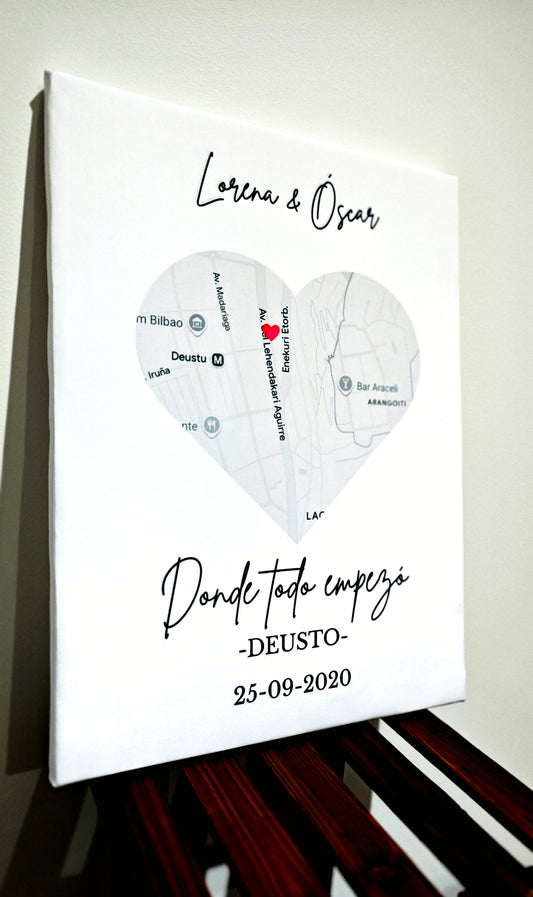 Lorena & Óscar
Av. Madariaga
m Bilbao
Av. Lehendakari Aguirre
Enekuri Etorb.
Deustu M
. Iruña
Bar Araceli
ARANGOITI
nte
LAC
Donde todo empezó
-DEUSTO-
25-09-2020